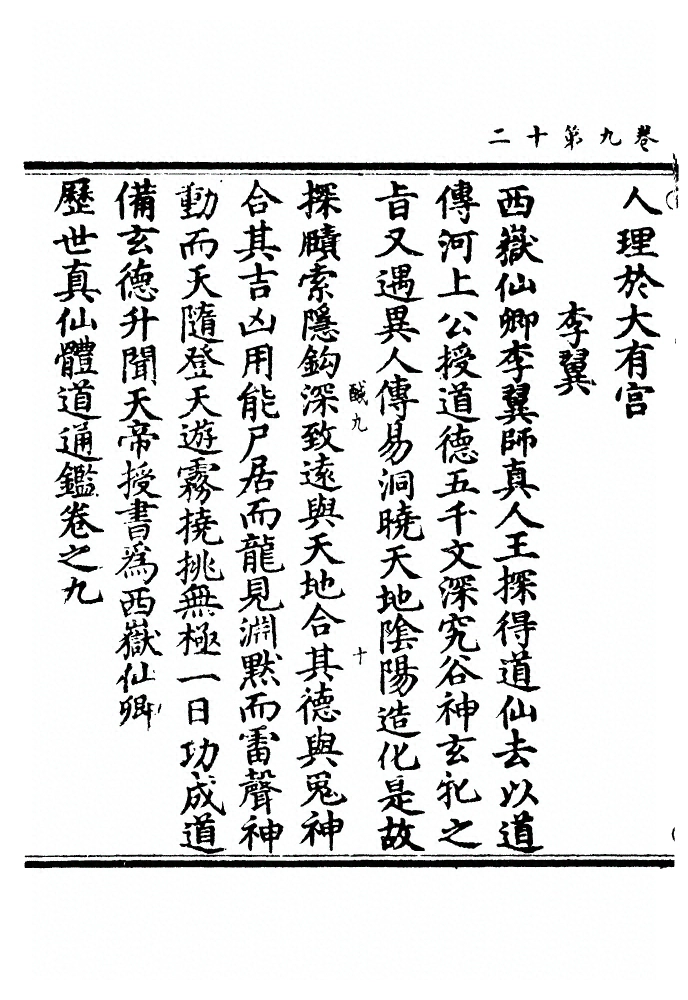 卷九第十二
人理於大有宫
李翼
西嶽仙卿李翼師真人王探得道仙去以道
傳河上公授道德五千文深究谷神玄牝之
旨又遇異人傳易洞曉天地陰陽造化是故
醎九
十
探賾索隱鈎深致遠與天地合其德與鬼神
合其吉凶用能尸居而龍見淵默而雷聲神
動而天隨登天遊霧撓挑無極一日功成道
備玄德升聞天帝授書為西嶽仙卿
歷世真仙體道通鑑卷之九